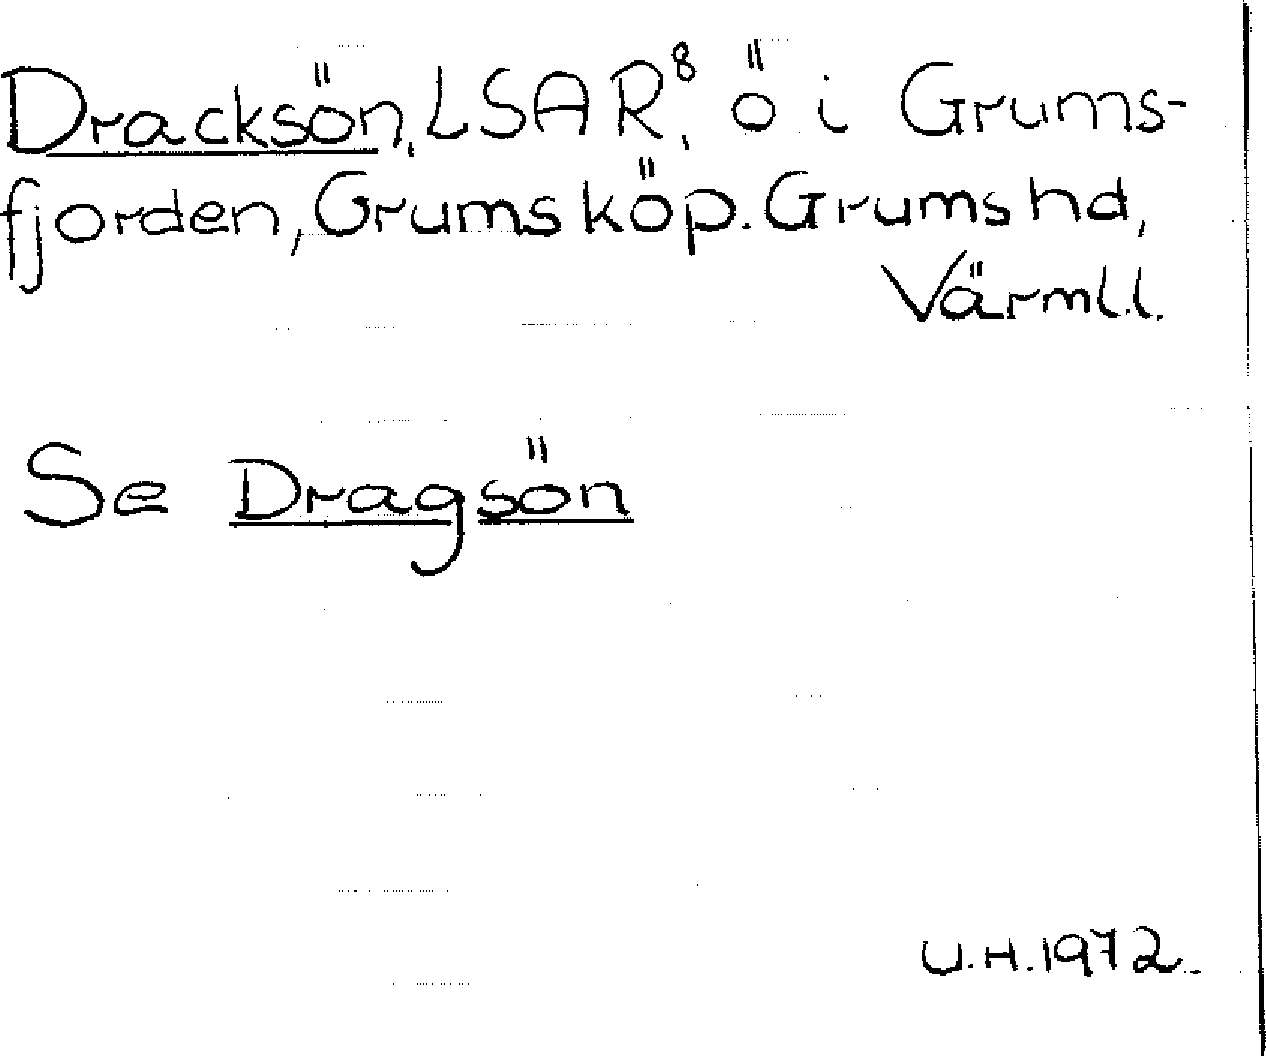 Dracksön, LSAR⁸, ö i Grums-
fjorden, Grums köp. Grums hd,
Värml.l.
Se Dragsön
U.H.1972.